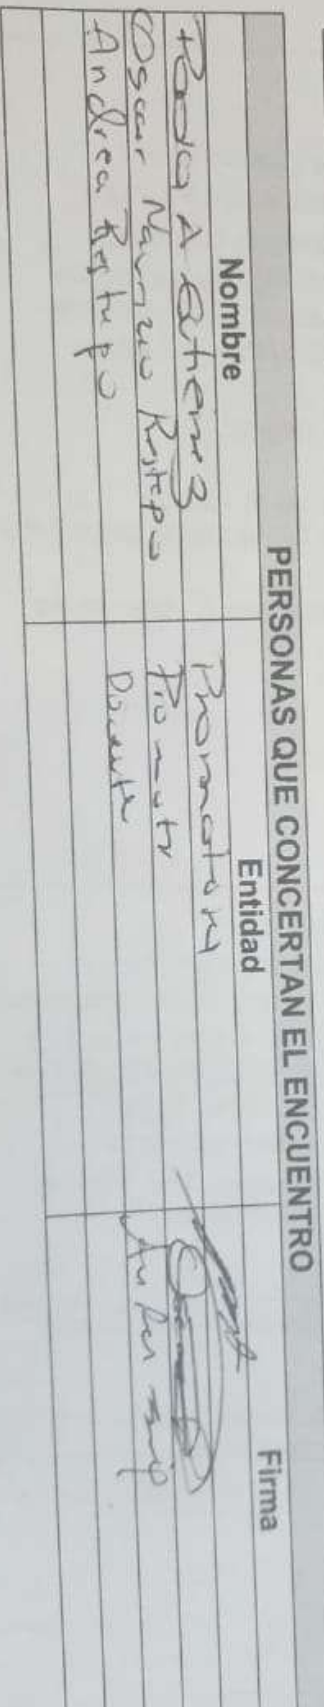 PERSONAS QUE CONCERTAN EL ENCUENTRO
Nombre Entidad Firma
A Gutierrez Promotora
Oscar Mauricio Restrepo Promotor
Andrea Restrepo Docente